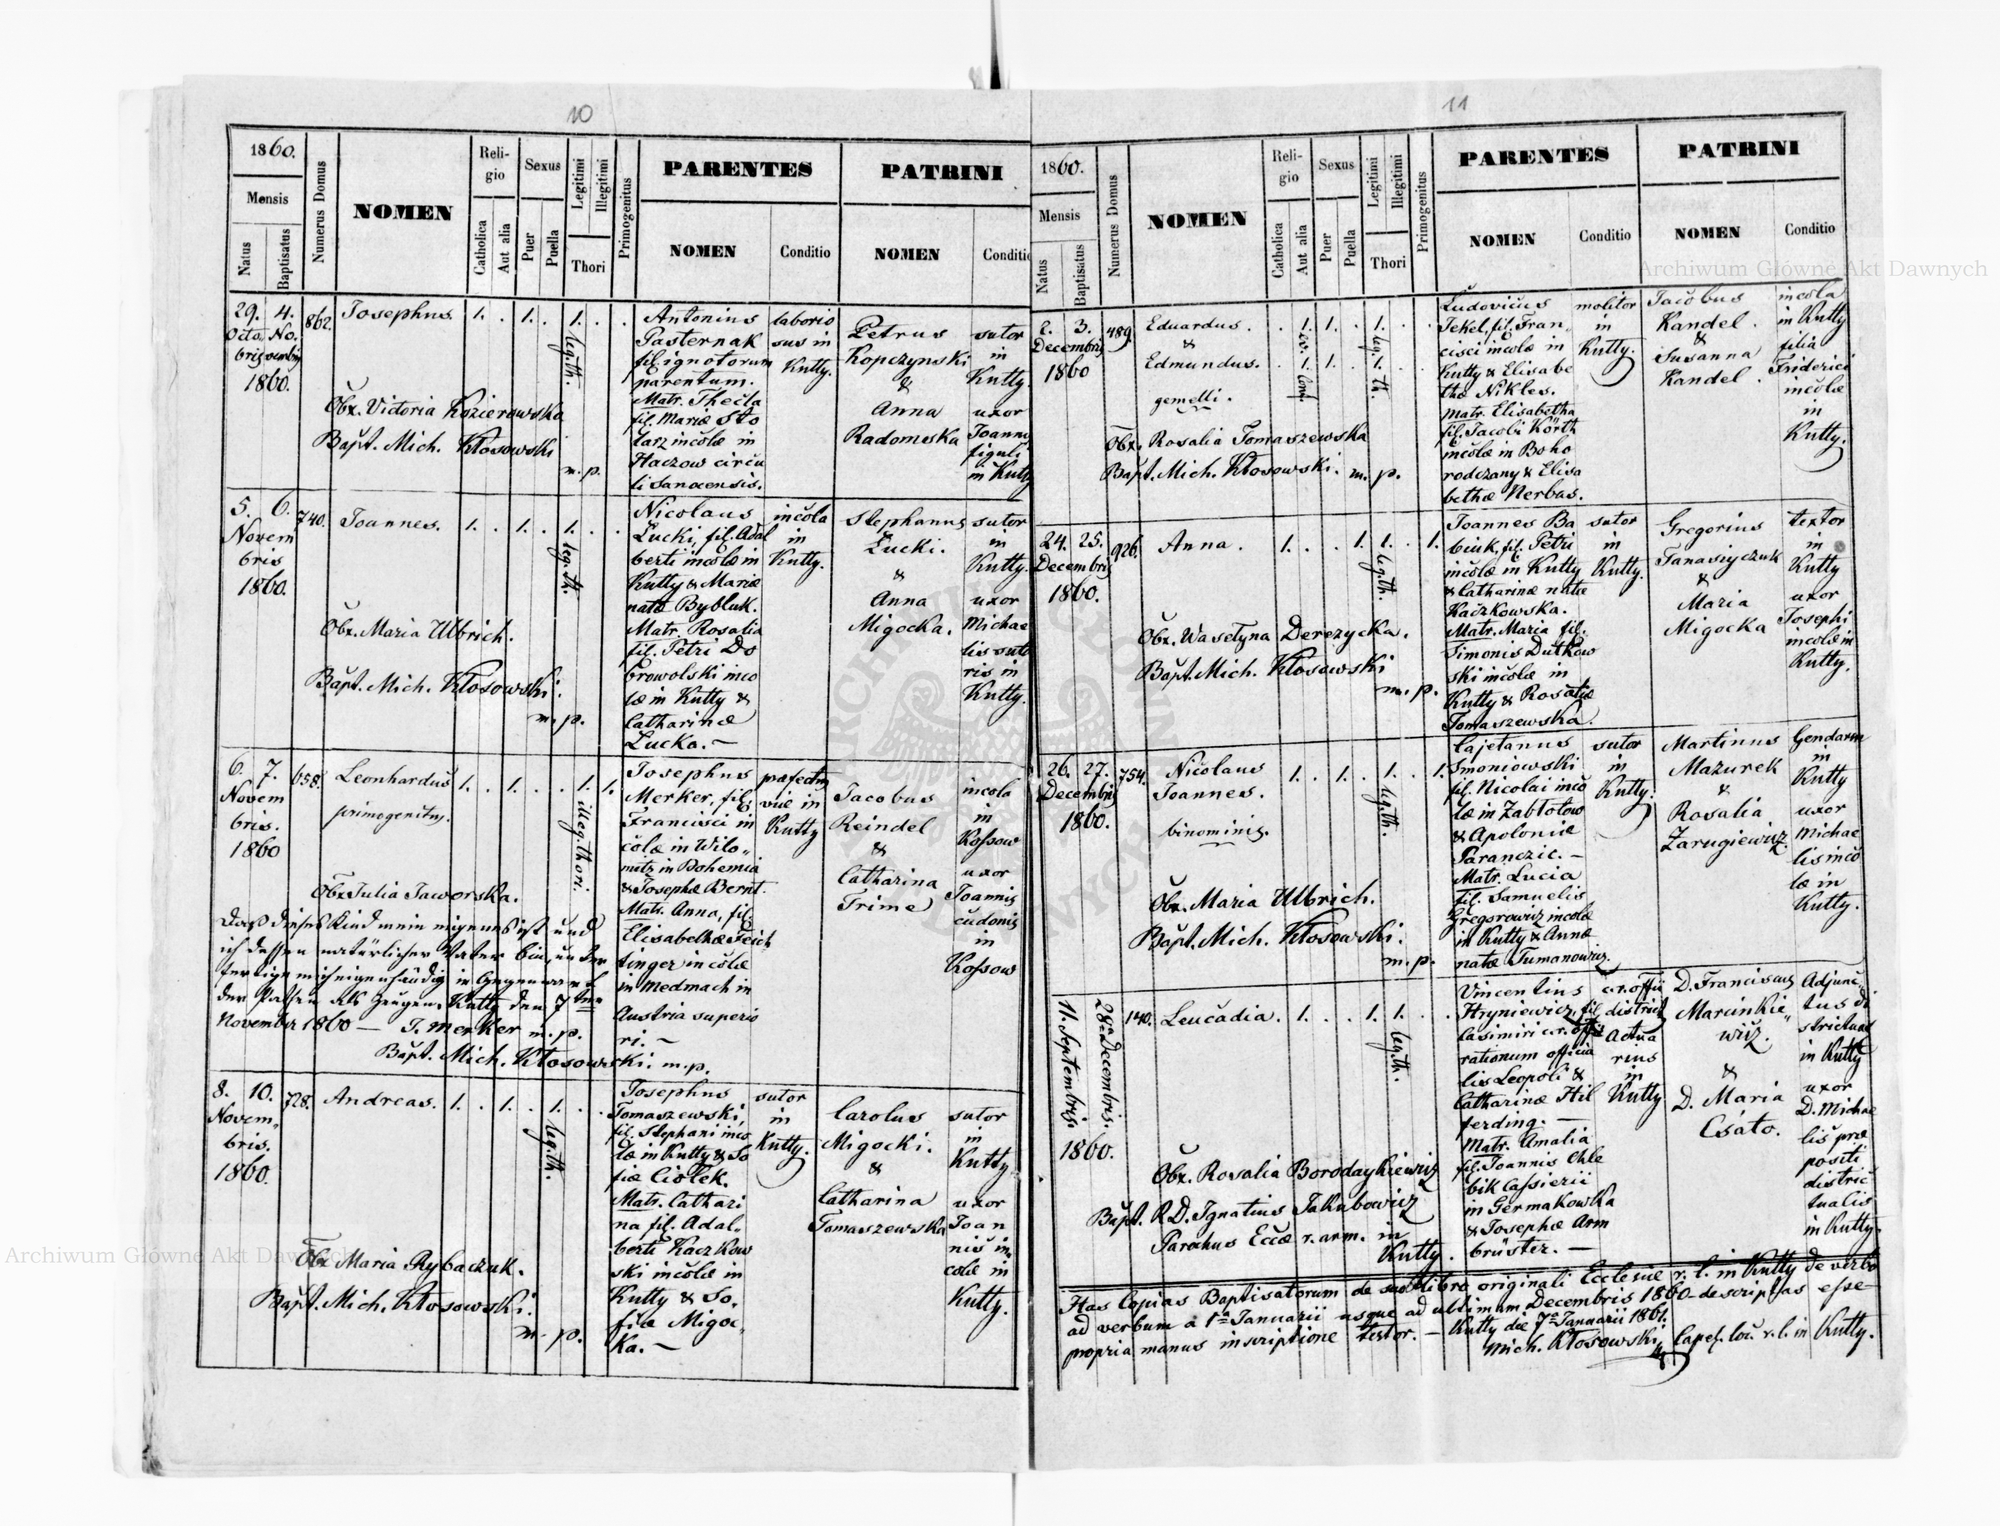 10
1860.
Mensis
Natus
Baptisatus
Numerus Domus
NOMEN
Religio
Catholica
Aut alia
Sexus
Puer
Puella
Legitimi
Illegitimi
Thori
Primogenitus
PARENTES
NOMEN
Conditio
PATRINI
NOMEN
Conditio
29. 4.
Octo No
bris vembris
1860.
862.
Josephus.
1. . 1. . 1. . .
leg. th.
Obx. Victoria Kozierowska
Bapt. Mich. Kłosowski
m. p.
Antonius
Pasternak
fil. ignotorum
parentum.
Matr. Thecla
fil. Mariæ Sto
larz incolæ in
Haczow circu
li Sanocensis.
laborio
sus in
Kutty.
Petrus
Kopczynski
&
Anna
Radomska
sutor
in
Kutty
uxor
Joannis
figuli
in Kutty
5. 6.
Novem
bris
1860.
740.
Joannes.
1. . 1. . 1. . .
leg. th.
Obx. Maria Ulbrich.
Bapt. Mich. Kłosowski.
m. p.
Nicolaus
Łucki, fil. Adal
berti incolæ in
Kutty & Mariæ
natæ Bybluk.
Matr. Rosalia
fil. Petri Do
browolski inco
læ in Kutty &
Catharinæ
Łucka. —
incola
in
Kutty.
Stephanus
Łucki.
&
Anna
Migocka.
sutor
in
Kutty.
uxor
Michae
lis suto
ris in
Kutty.
6. 7.
Novem
bris.
1860
658.
Leonhardus
primogenitus.
1. . 1. . . 1. 1.
illeg. thori.
Obx Julia Jaworska.
Daß dieses Kind mein eigenes ist und
ich dessen natürlicher Vater bin, un ter
fertige mich eigenhändig in Gegenwart
der Pathen als Zeugen. Kutty den 7ten
November 1860 — J. Merker m. p.
Bapt. Mich. Kłosowski. m. p.
Josephus
Merker, fil.
Francisci in
colæ in Wilo„
mitz in Bohemia
& Josephæ Bernt.
Matr. Anna, fil.
Elisabethæ Feich
tinger incolæ
in Medmach in
Austria superio
ri. —
præfectus
viæ in
Kutty
Jacobus
Reindel
&
Catharina
Trime
incola
in
Kossow
uxor
Joannis
in
Kossow
8. 10.
Novem„
bris.
1860.
728.
Andreas.
1. . 1. . 1. . .
leg. th.
Obx Maria Rybaczuk.
Bapt. Mich. Kłosowski.
m. p.
Josephus
Tomaszewski,
fil. Stephani inco
læ in Kutty & So
fiæ Ciołek.
Matr. Cathari
na fil. Adal„
berti Kaczkow
ski incolæ in
Kutty & So„
fiæ Migoc„
ka. —
sutor
in
Kutty.
Carolus
Migocki.
&
Catharina
Tomaszewska
sutor
in
Kutty
uxor
Joan
nis in„
colæ in
Kutty.
11
1860.
Mensis
Natus
Baptisatus
Numerus Domus
NOMEN
Religio
Catholica
Aut alia
Sexus
Puer
Puella
Legitimi
Illegitimi
Thori
Primogenitus
PARENTES
NOMEN
Conditio
PATRINI
NOMEN
Conditio
2. 3.
Decembris
1860
489.
Eduardus.
&
Edmundus.
gemelli.
. 1. 1. . 1. . .
. 1. 1. . 1. . .
leg. th.
Obx. Rosalia Tomaszewska
Bapt. Mich. Kłosowski. m. p.
Ludovicus
Jekel, fil. Fran„
cisci incolæ in
Kutty & Elisabe
thæ Nikles.
Matr. Elisabetha
fil. Jacobi Körth
incolæ in Boho
rodczany & Elisa
bethæ Nerbas.
molitor
in
Kutty.
Jacobus
Kandel.
&
Susanna
Kandel.
incola
in Kutty
filia
Friderici
incolæ
in
Kutty.
24. 25.
Decembris
1860.
926.
Anna.
1. . . 1. 1. . 1.
leg. th.
Obx. Wasełyna Derezycka.
Bapt. Mich. Kłosowski
m. p.
Joannes Ba
biuk, fil. Petri
incolæ in Kutty
& Catharinæ natæ
Kaczkowska.
Matr. Maria fil.
Simonis Dutkow
ski incolæ in
Kutty & Rosaliæ
Tomaszewska.
sutor
in
Kutty.
Gregorius
Tanasiyczuk
&
Maria
Migocka
textor
in
Kutty
uxor
Josephi
incolæ in
Kutty.
26. 27.
Decembris
1860.
754.
Nicolaus
Joannes.
binominis.
1. . 1. . 1. . 1.
leg. th.
Obx. Maria Ulbrich.
Bapt. Mich. Kłosowski.
m. p.
Cajetanus
Smoniowski
fil. Nicolai inco
læ in Zabłotow
& Apoloniæ
Paranczic. —
Matr. Lucia
fil. Samuelis
Gregorowicz incolæ
in Kutty & Annæ
natæ Tumanowicz.
sutor
in
Kutty.
Martinus
Mazurek
&
Rosalia
Zarugiewicz.
Gendarm
in
Kutty
uxor
Michae
lis inco
læ in
Kutty.
11. Septembris.
28. Decembris.
1860.
140.
Leucadia.
1. . . 1. 1. . .
leg. th.
Obx. Rosalia Borodaykiewicz
Bapt. R. D. Ignatius Jakubowicz
Parochus Eccæ r. arm. in
Kutty.
Vincentius
Hryniewicz, fil.
Casimiri c. r. offic
rationum officia
lis Leopoli &
Catharinæ Hil
ferding. —
Matr. Amalia
fil. Joannis Chle
bik Cassierii
in Germakowka
& Josephæ Arm
brüster. —
c. r. offii
district
Actua
rius
in
Kutty
D. Franciscus
Marcinkie„
wicz.
&
D. Maria
Csáto.
Adjunc„
tus di
strictual
in Kutty
uxor
D. Michae
lis præ
positi
distric
tualis
in Kutty.
Has Copias Baptisatorum de suo libro originali Ecclesiæ r. l. in Kutty de verbo
ad verbum a 1ma Januarii usque ad ultimam Decembris 1860 descriptas esse
propria manus inscriptione testor. — Kutty die 7ma Januarii 1861.
Mich. Kłosowski, Capel. loc. r. l. in Kutty.
Archiwum Główne Akt Dawnych
Archiwum Główne Akt Dawnych